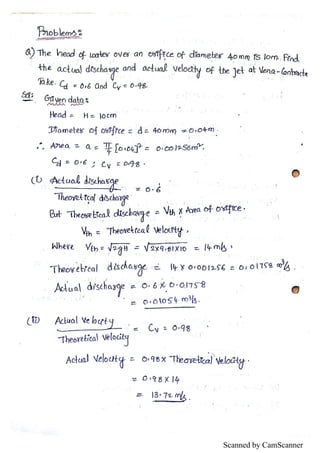 Problems:
Q) The head of water over an orifice of diameter 40mm is 10m. Find
the actual discharge and actual velocity of the jet at Vena-Contracta
Take. Cd = 0.6 and Cv = 0.98.
Sol: Given data:
Head = H = 10cm
Diameter of orifice = d = 40mm = 0.04m.
∴ Area = a = π/4 [0.04]² = 0.001256m².
Cd = 0.6 ; Cv = 0.98.
(i) Actual discharge / Theoretical discharge = 0.6
But Theoretical discharge = Vth x Area of orifice.
Vth = Theoretical velocity,
Where Vth = √2gH = √2x9.81x10 = 14m/s.
Theoretical discharge = 14 x 0.001256 = 0.01758 m³/s.
Actual discharge = 0.6 x 0.01758
= 0.01054 m³/s.
(ii) Actual velocity / Theoretical velocity = Cv = 0.98
Actual velocity = 0.98 x Theoretical velocity.
= 0.98 x 14
= 13.72 m/s.
Scanned by CamScanner